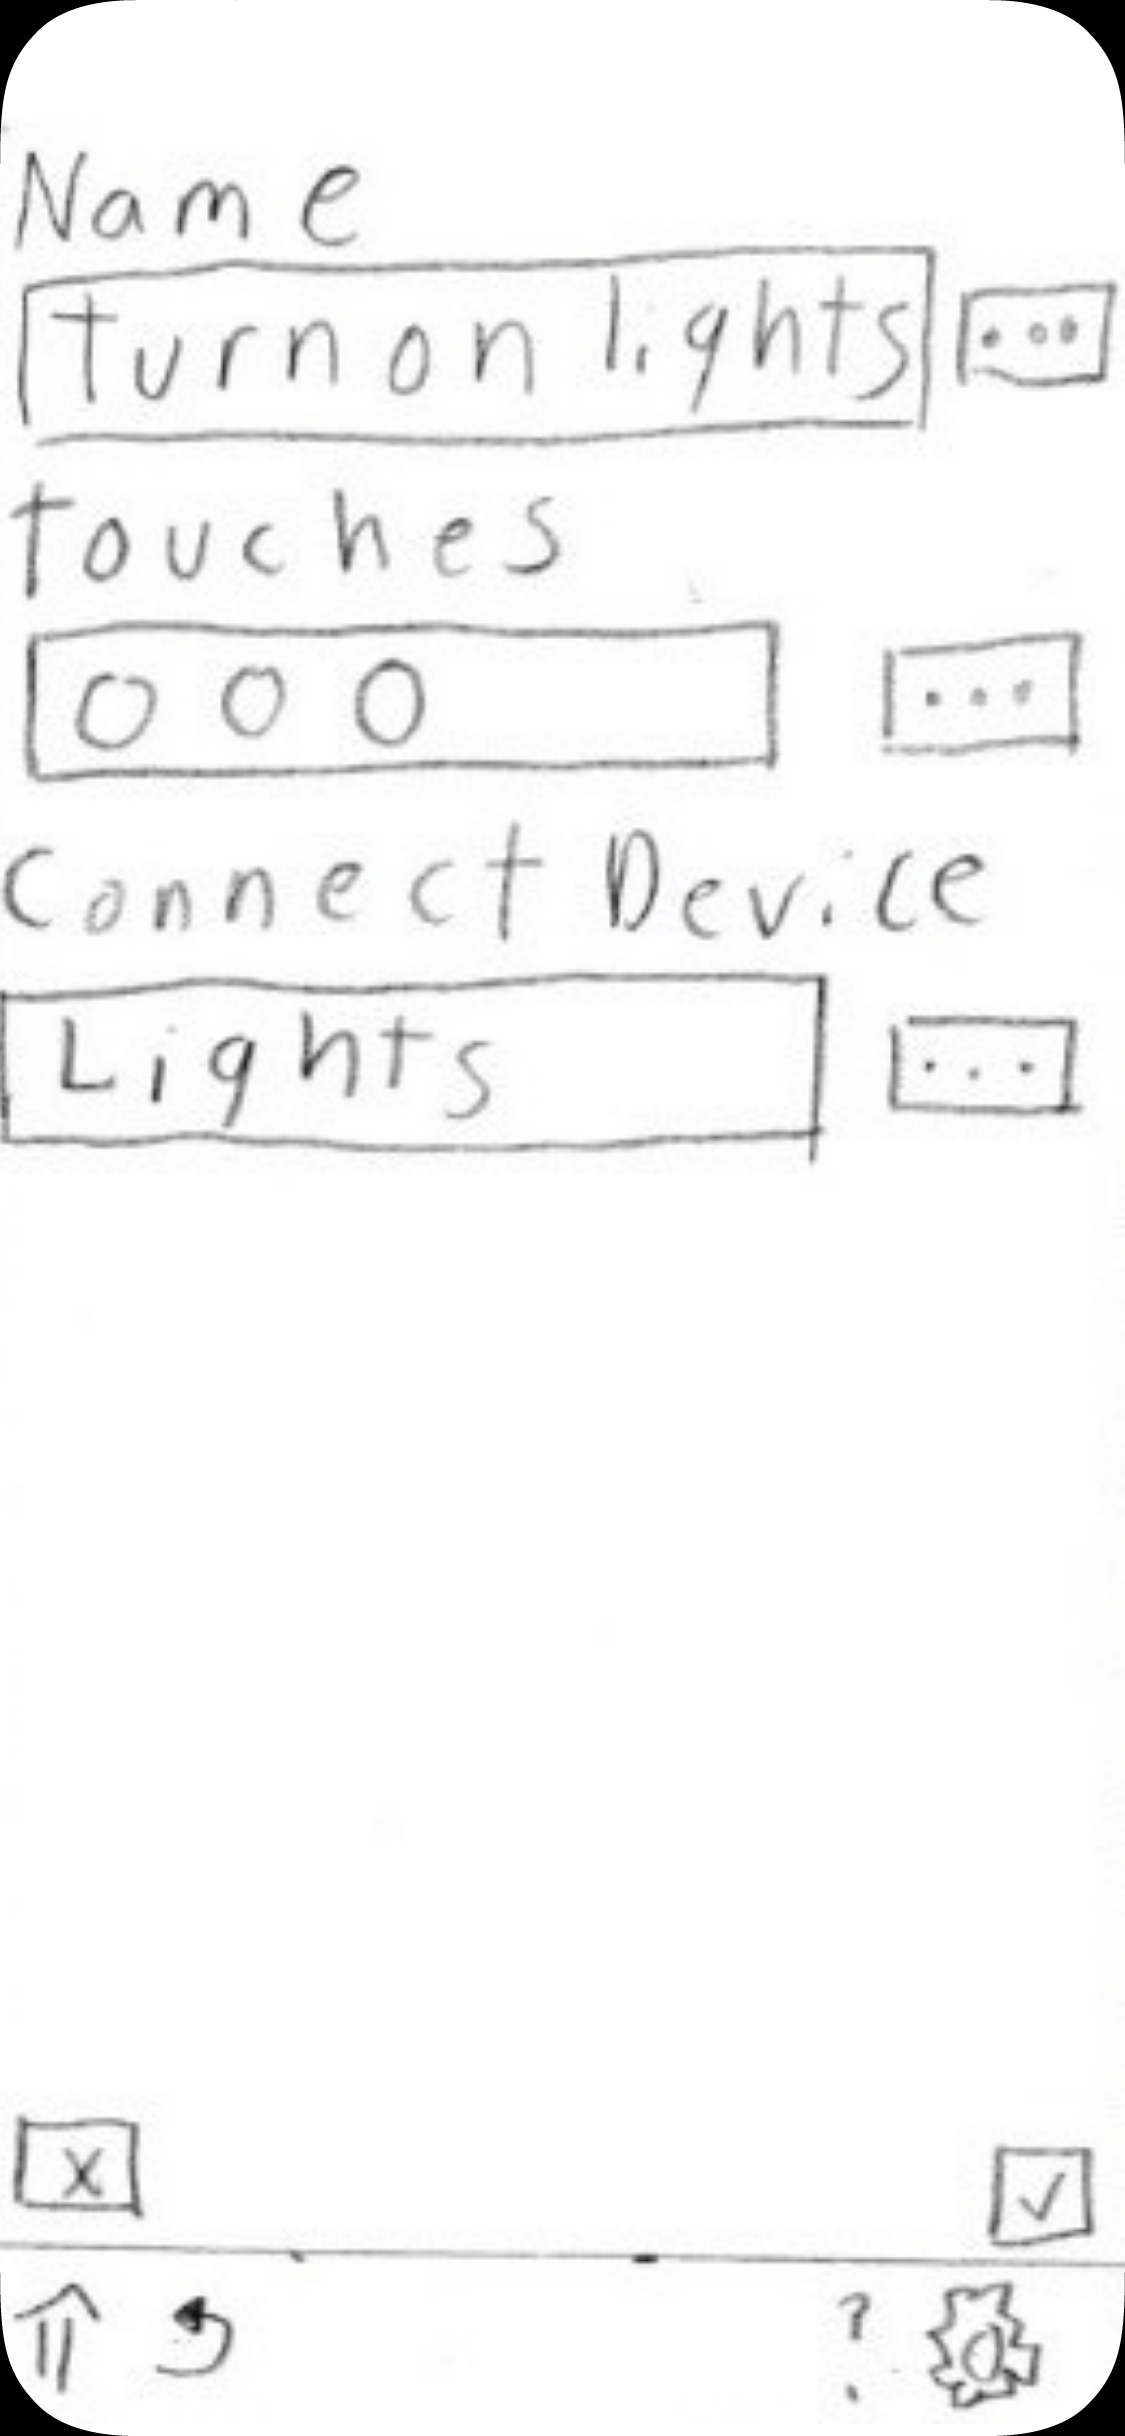 Name
turn on lights
touches
Connect Device
Lights
X
?